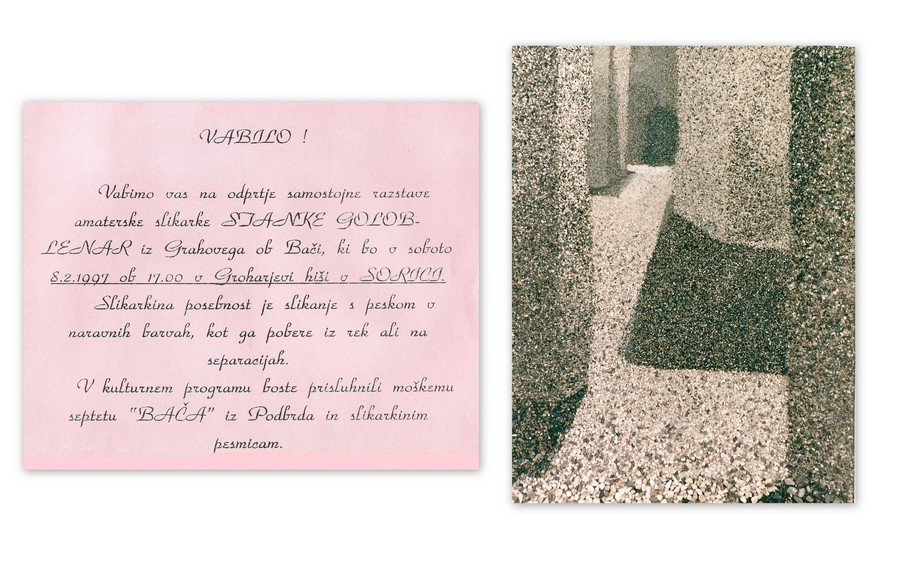 VABILO !
Vabimo vas na odprtje samostojne razstave
amaterske slikarke STANKE GOLOB-
LENAR iz Grahovega ob Bači, ki bo v soboto
8.2.1997 ob 17.00 v Groharjevi hiši v SORICI.
Slikarkina posebnost je slikanje s peskom v
naravnih barvah, kot ga pobere iz rek ali na
separacijah.
V kulturnem programu boste prisluhnili moškemu
septetu "BAČA" iz Podbrda in slikarkinim
pesmicam.